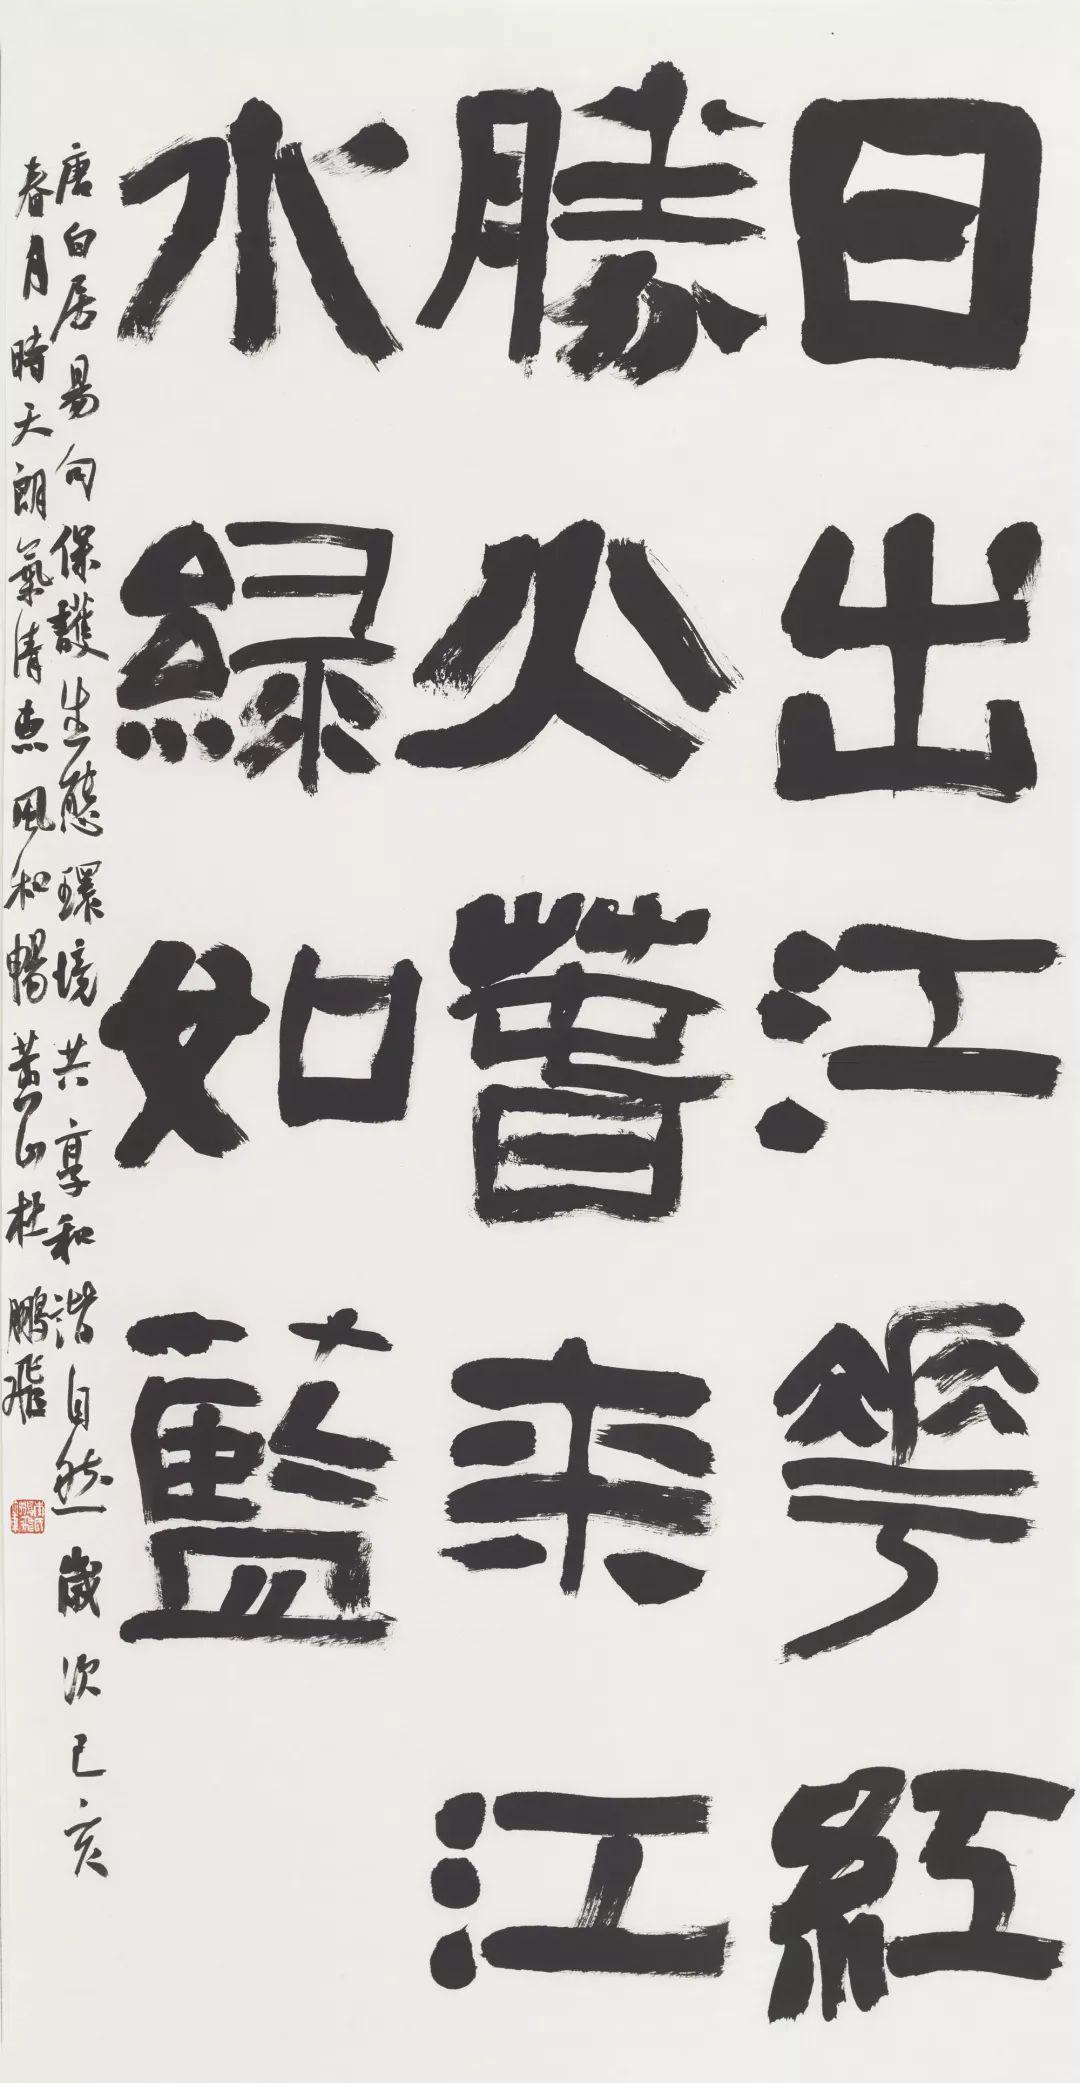 日出江花紅
勝火萅来江
水緑如藍
唐白居易句保護生態環境共享和諧自然歲次己亥
春月時天朗氣清惠風和暢黄山杜鵬飛